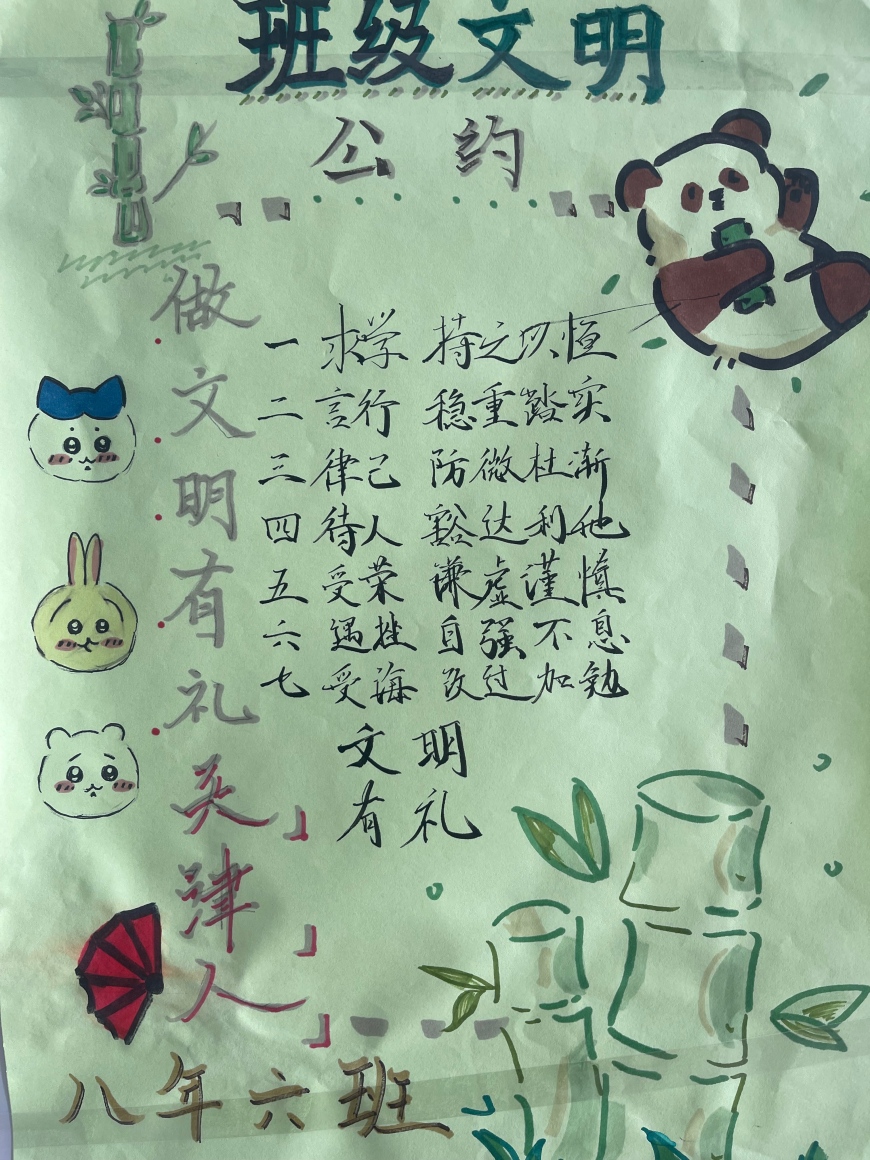 班级文明
公约
做文明有礼天津人
一 求学 持之以恒
二 言行 稳重踏实
三 律己 防微杜渐
四 待人 豁达利他
五 受荣 谦虚谨慎
六 遇挫 自强不息
七 受诲 改过加勉
文明
有礼
八年六班